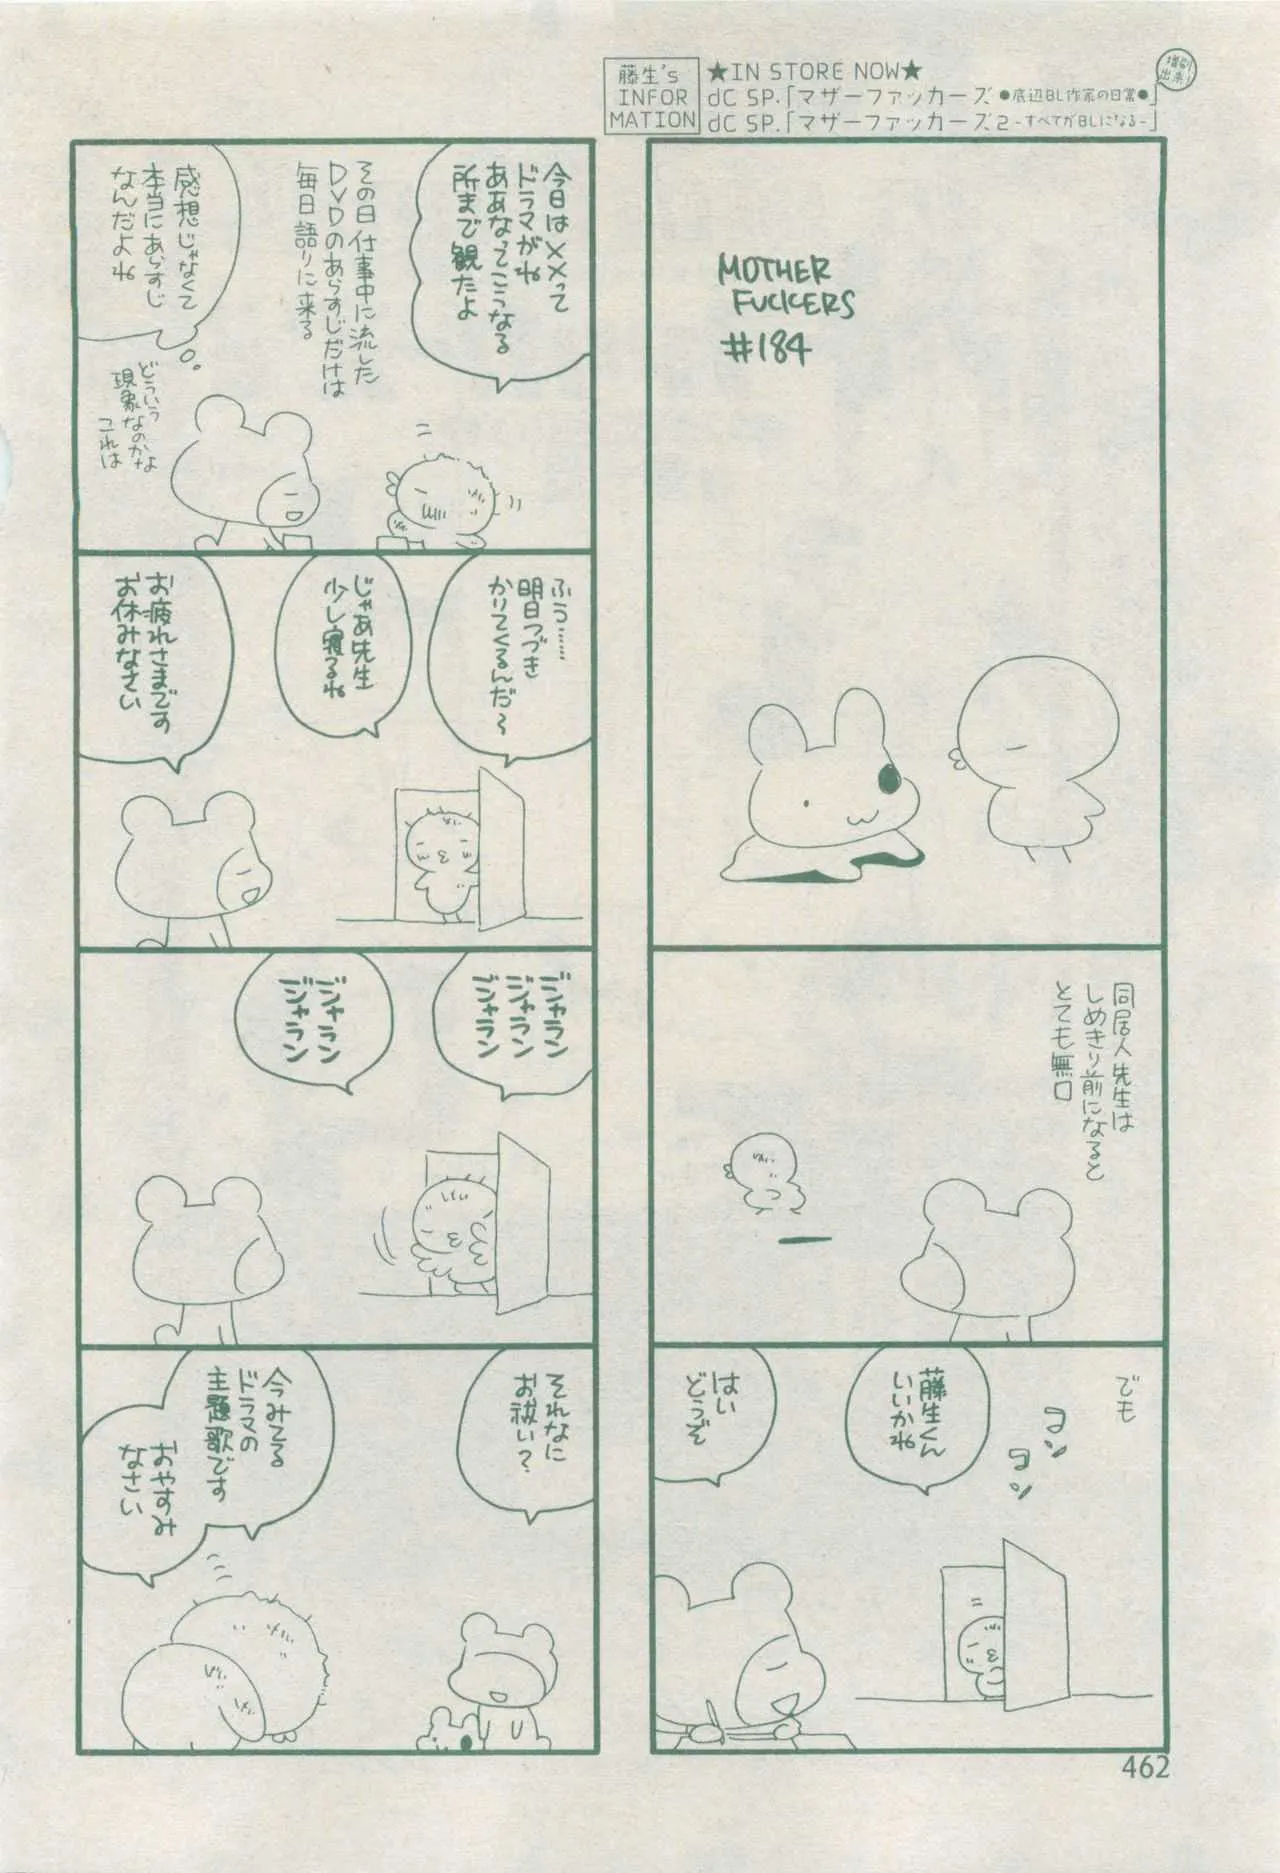 藤生's
INFOR
MATION
★IN STORE NOW★
dC SP.「マザーファッカーズ ●底辺BL作家の日常●」
dC SP.「マザーファッカーズ2 -すべてがBLになる-」
増刷
出来!
MOTHER
FUCKERS
#184
同居人先生は
しめきり前になると
とても無口
でも
コン
コン
藤生くん
いいかね
はい
どうぞ
今日は××って
ドラマがね
ああなってこうなる
所まで観たよ
その日仕事中に流した
DVDのあらすじだけは
毎日語りに来る
感想じゃなくて
本当にあらすじ
なんだよね
どういう
現象なのかな
これは
ふう……
明日つづき
かりてくるんだ〜
じゃあ先生
少し寝るね
お疲れさまです
お休みなさい
ジャラン
ジャラン
ジャラン
ジャラン
ジャラン
それなに
お祓い?
今みてる
ドラマの
主題歌です
おやすみ
なさい
462